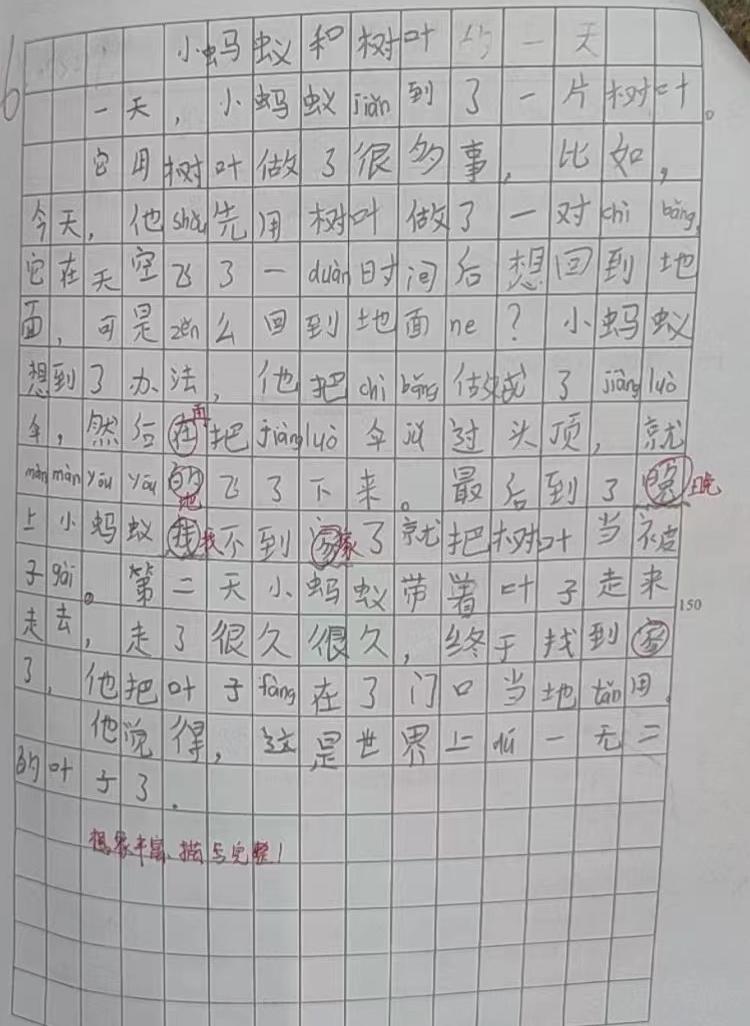 小蚂蚁和树叶的一天
一天，小蚂蚁jiǎn到了一片树叶。
它用树叶做了很多的事，比如，
今天，他shǒu先用树叶做了一对chì bǎng，
它在天空飞了一duàn时间后想回到地
面，可是zěn么回到地面ne？小蚂蚁
想到了办法，他把chì bǎng做成了jiàng luò
伞，然后在再把jiàng luò伞过头顶，就
màn màn yōu yōu的地飞了下来。最后到了晚晚
上小蚂蚁找找不到家家了就把树叶当被
子gài。第二天小蚂蚁带着叶子走来
150
走去，走了很久很久，终于找到家
了，他把叶子fàng在了门口当地tǎn用。
他觉得，这是世界上dú一无二
的叶子了．
想象丰富，描写完整！